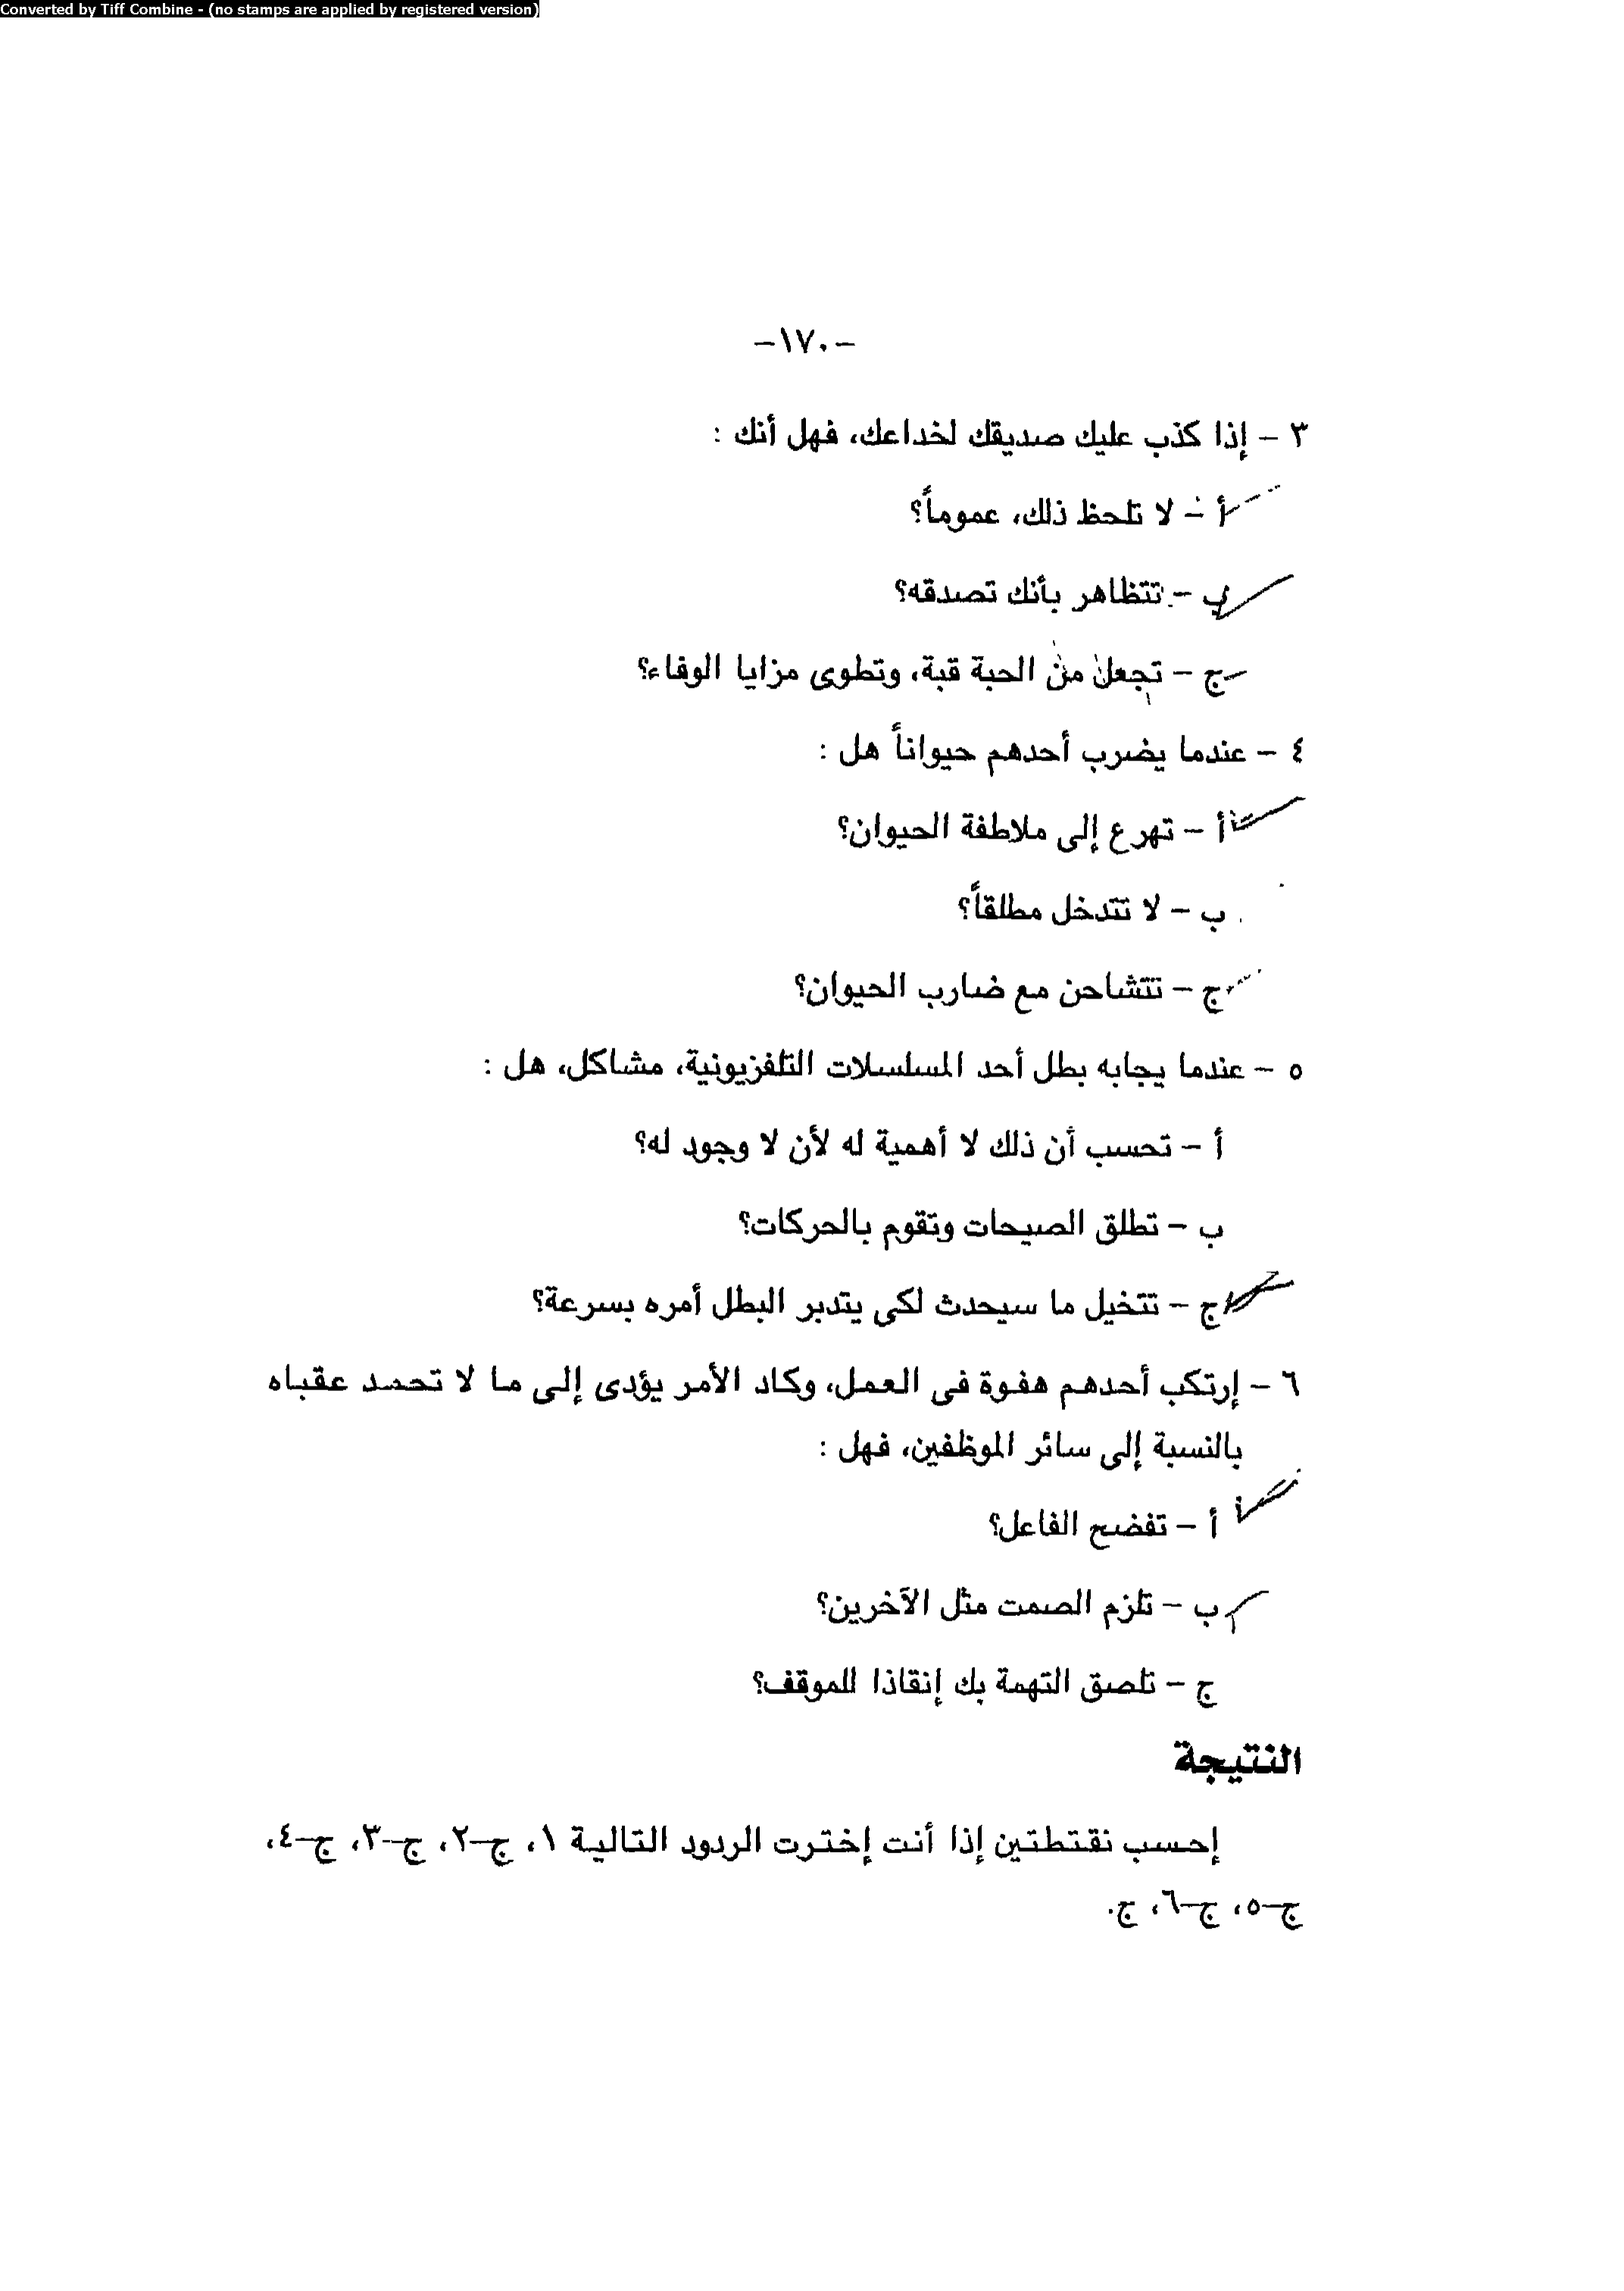 Converted by Tiff Combine - (no stamps are applied by registered version)
-١٧٠-
٣ - إذا كذب عليك صديقك لخداعك، فهل أنك :
أ - لا تلحظ ذلك، عموماً؟
ب - تتظاهر بأنك تصدقه؟
ج - تجعل من الحبة قبة، وتطوى مزايا الوفاء؟
٤ - عندما يضرب أحدهم حيواناً هل :
أ - تهرع إلى ملاطفة الحيوان؟
ب - لا تتدخل مطلقاً؟
ج - تتشاحن مع ضارب الحيوان؟
٥ - عندما يجابه بطل أحد المسلسلات التلفزيونية، مشاكل، هل :
أ - تحسب أن ذلك لا أهمية له لأن لا وجود له؟
ب - تطلق الصيحات وتقوم بالحركات؟
ج - تتخيل ما سيحدث لكى يتدبر البطل أمره بسرعة؟
٦ - إرتكب أحدهم هفوة فى العمل، وكاد الأمر يؤدى إلى ما لا تحمد عقباه
بالنسبة إلى سائر الموظفين، فهل :
أ - تفضح الفاعل؟
ب - تلزم الصمت مثل الآخرين؟
ج - تلصق التهمة بك إنقاذا للموقف؟
النتيجة
إحسب نقتطتين إذا أنت إخترت الردود التالية ١، ج-٢، ج-٣، ج-٤،
ج-٥، ج-٦، ج.